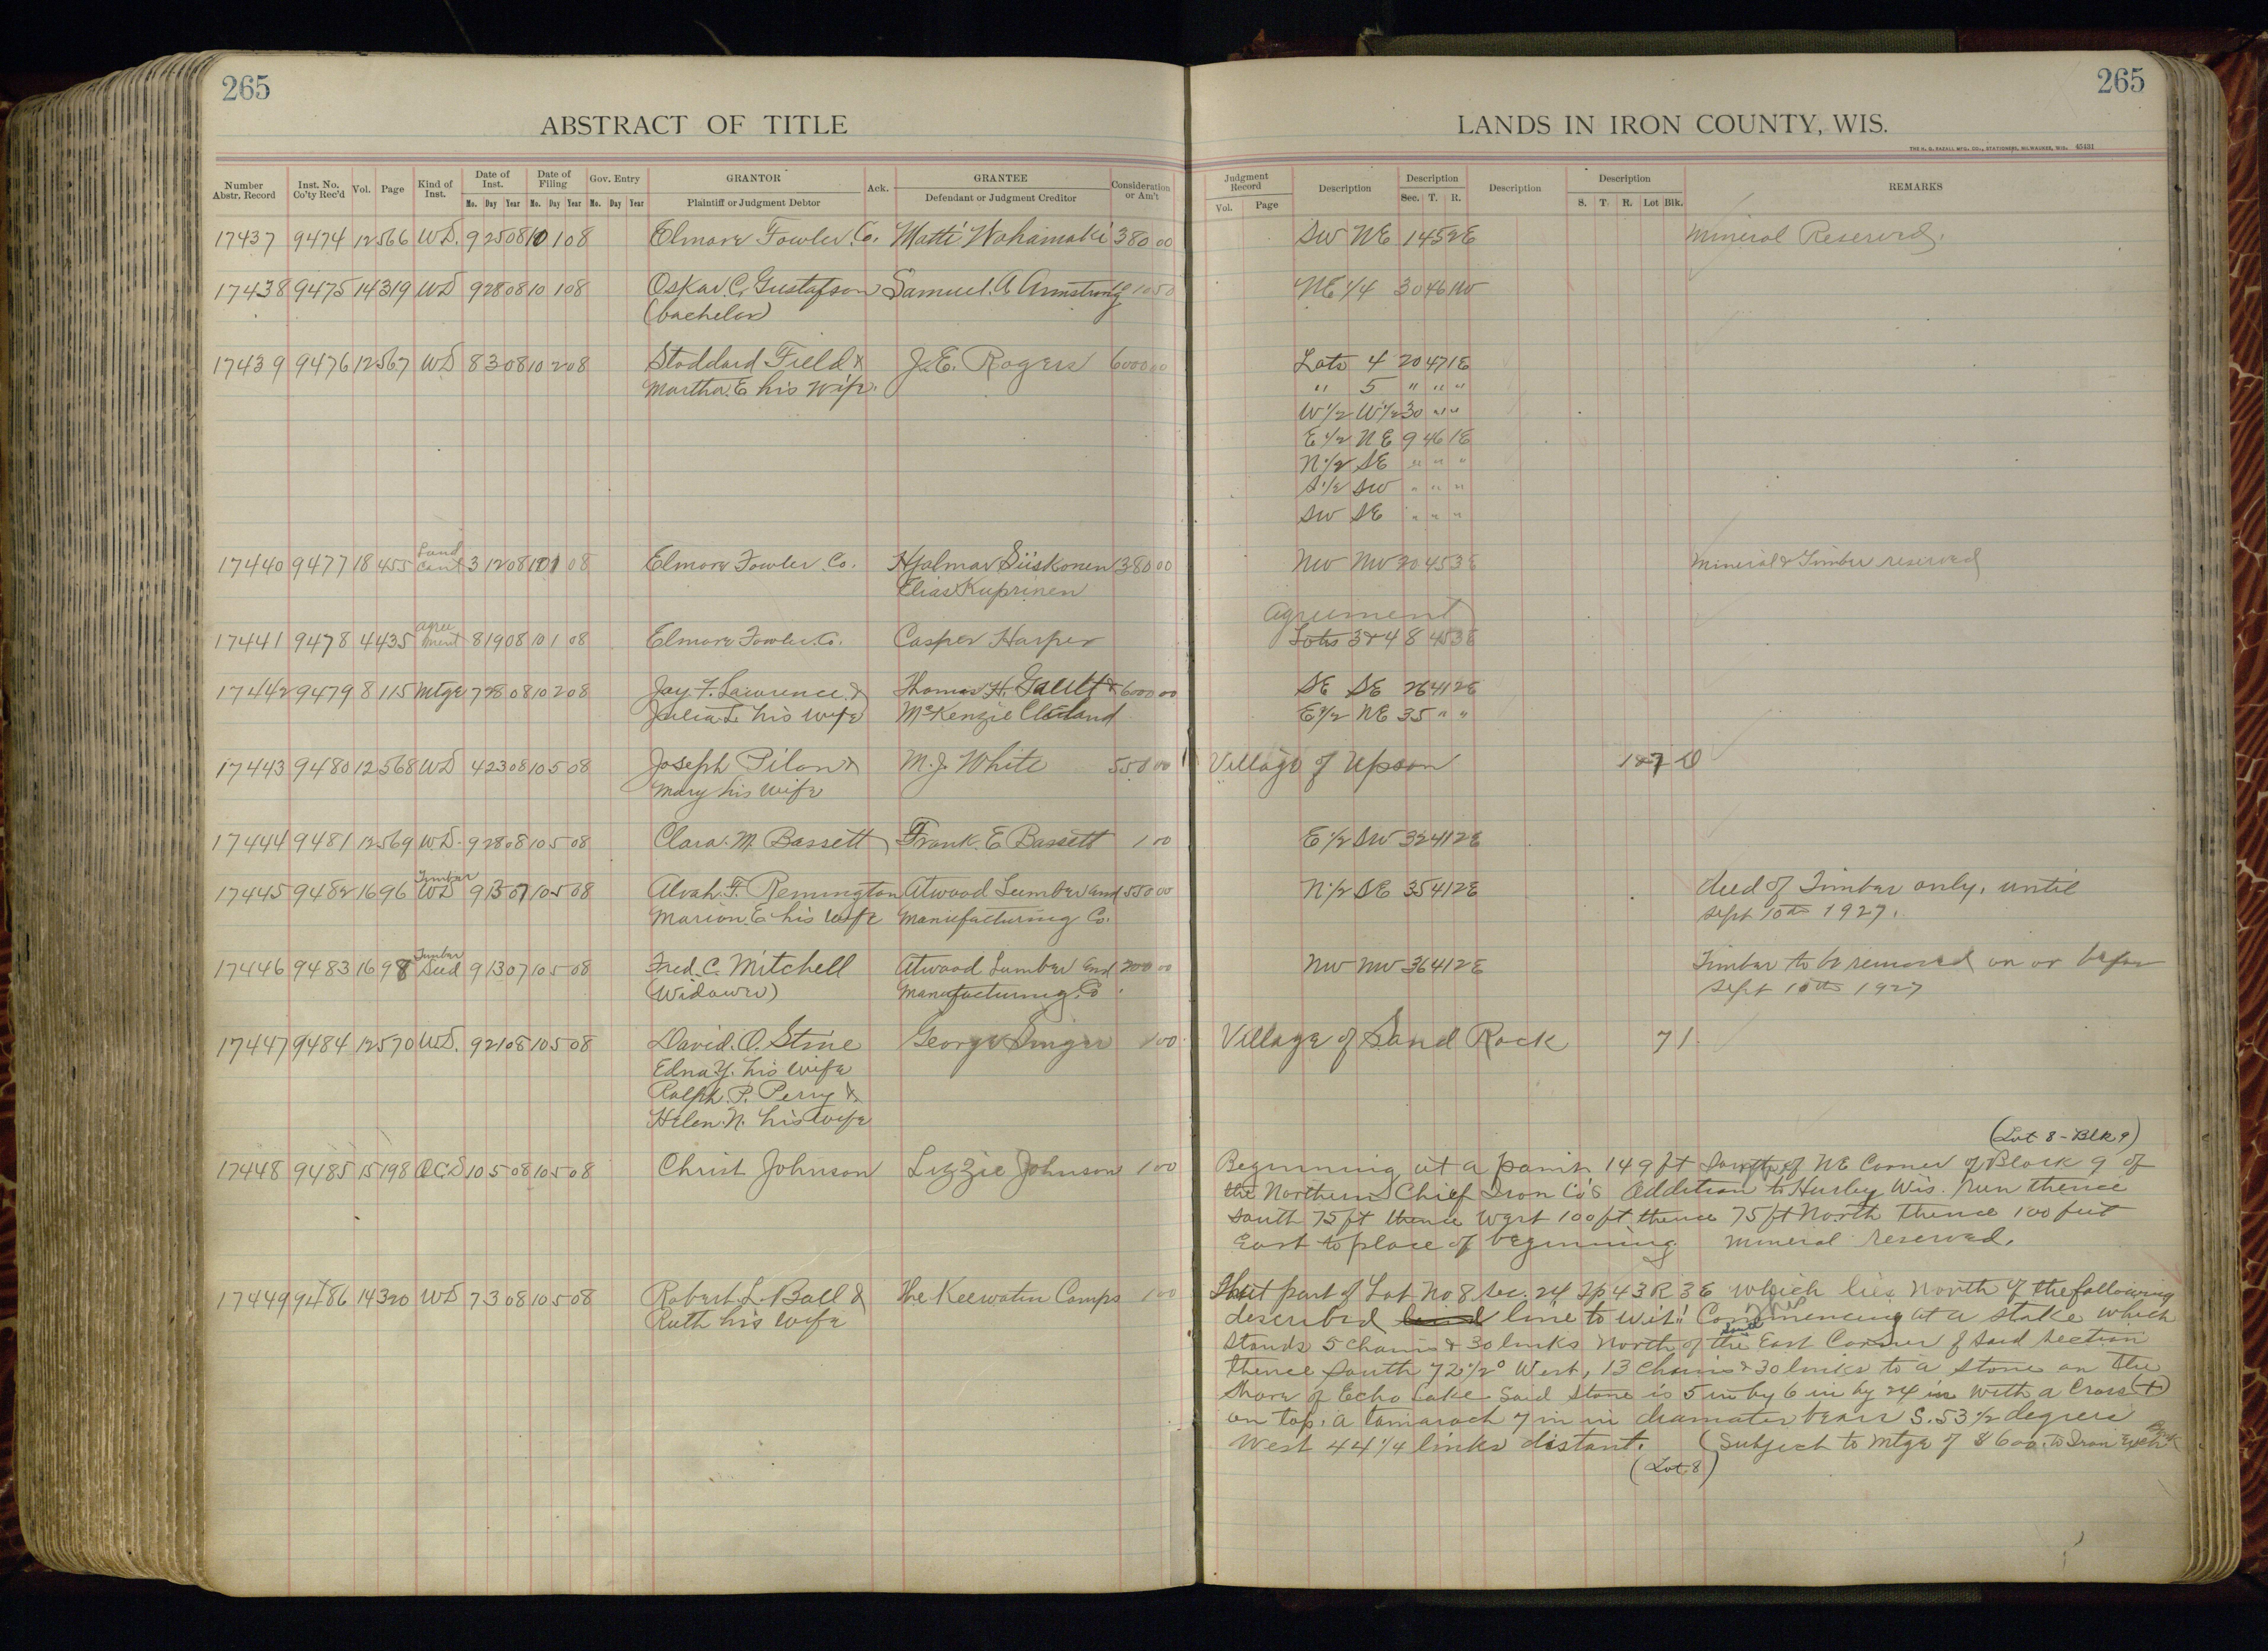 265
ABSTRACT OF TITLE
Number Abstr. Record Inst. No. Co'ty Rec'd Vol. Page Kind of Inst. Date of Inst. Date of Filing Gov. Entry GRANTOR Ack. GRANTEE Consideration or Am't
Mo. Day Year Mo. Day Year Mo. Day Year Plaintiff or Judgment Debtor Defendant or Judgment Creditor
17437 9474 12 566 WD. 9 25 08 10 1 08 Elmore Fowler Co. Matti Wahamaki 380 00
17438 9475 14 319 WD 9 28 08 10 1 08 Oskar C. Gustafson Samuel A Armstrong
(bachelor)
17439 9476 12 567 WD 8 3 08 10 2 08 Stoddard Field & J.E. Rogers 6000 00
Martha E his wife.
17440 9477 18 455 Land Cont 3 12 08 10 1 08 Elmore Fowler Co. Hjalmar Siiskonen 1380 00
Elias Kuprinen
17441 9478 4 435 agree ment 8 19 08 10 1 08 Elmore Fowler Co. Casper Harper
17442 9479 8 115 Mtge 7 28 08 10 2 08 Jay F. Lawrence & Thomas H. Gault & 6000 00
Julia L. his wife McKenzie Cleland
17443 9480 12 568 WD 4 23 08 10 5 08 Joseph Pilon & M.J. White 550 00
Mary his wife
17444 9481 12 569 WD. 9 28 08 10 5 08 Clara M. Bassett Frank E Bassett 1 00
17445 9482 16 96 Timber WD 9 13 07 10 5 08 Alvah F. Remington Atwood Lumber and 550 00
Marion E his wife Manufacturing Co.
17446 9483 16 98 Timber Deed 9 13 07 10 5 08 Fred C. Mitchell Atwood Lumber and 200 00
(Widower) Manufacturing Co.
17447 9484 12 570 WD. 9 21 08 10 5 08 David O. Stine George Singer 1 00
Edna Y. his wife
Ralph P. Perry &
Helen N. his wife
17448 9485 15 198 QCD 10 5 08 10 5 08 Christ Johnson Lizzie Johnson 1 00
17449 9486 14 320 WD 7 3 08 10 5 08 Robert L. Ball & The Keewatin Camps 1 00
Ruth his wife
265
LANDS IN IRON COUNTY, WIS.
THE H. G. RAZALL MFG. CO., STATIONERS, MILWAUKEE, WIS. 45431
Judgment Record Description Description Description Description REMARKS
Vol. Page Sec. T. R. S. T. R. Lot Blk.
SW NE 14 45 2E Mineral Reserved.
NE 1/4 30 46 1W
Lots 4 20 47 1E
" 5 " " "
W 1/2 W 1/2 30 " "
E 1/2 NE 9 46 1E
N 1/2 SE " " "
S 1/2 SW " " "
SW SE " " "
NW NW 20 45 3E Mineral & Timber reserved
Agreement
Lots 3 & 4 8 45 3E
SE SE 26 41 2E
E 1/2 NE 35 " "
Village of Upson
E 1/2 SW 32 41 2E
N 1/2 SE 35 41 2E deed of Timber only, until
Sept 10th 1927.
NW NW 36 41 2E Timber to be removed on or before
Sept 10th 1927
Village of Sand Rock 7 1
(Lot 8 - Blk 9)
Beginning at a point 149 ft South of NE Corner of Block 9 of
the Northern Chief Iron Co's Addition to Hurley Wis. run thence
South 75 ft thence West 100 ft thence 75 ft North thence 100 feet
East to place of beginning. Mineral reserved.
That part of Lot No 8 Sec. 24 Tp 43 R 3 E which lies North of the following
described line to wit: Commencing at a stake which
Stands 5 chains & 30 links North of the South East Corner of said section
thence South 72 1/2° West, 13 chains & 30 links to a stone on the
Shore of Echo Lake Said stone is 5 in by 6 in by 24 in with a Cross (+)
on top. a tamarach 7 in in diamater bears S. 53 1/2 degrees
West 44 1/4 links distant. (Subject to Mtge of $600. to Iron Exch Bk
(Lot 8)